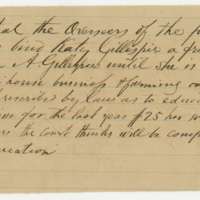 that the Overseers of the p
bind Katy Gillespie a fr
A. Gillespie until she is
house business & farming
prescribed by law as to edu
for the last year $25 has
the court thinks will be comp
education